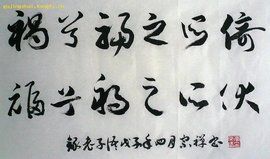 禍兮福之所倚
福兮禍之所伏
録老子语戊子年四月宗祥书